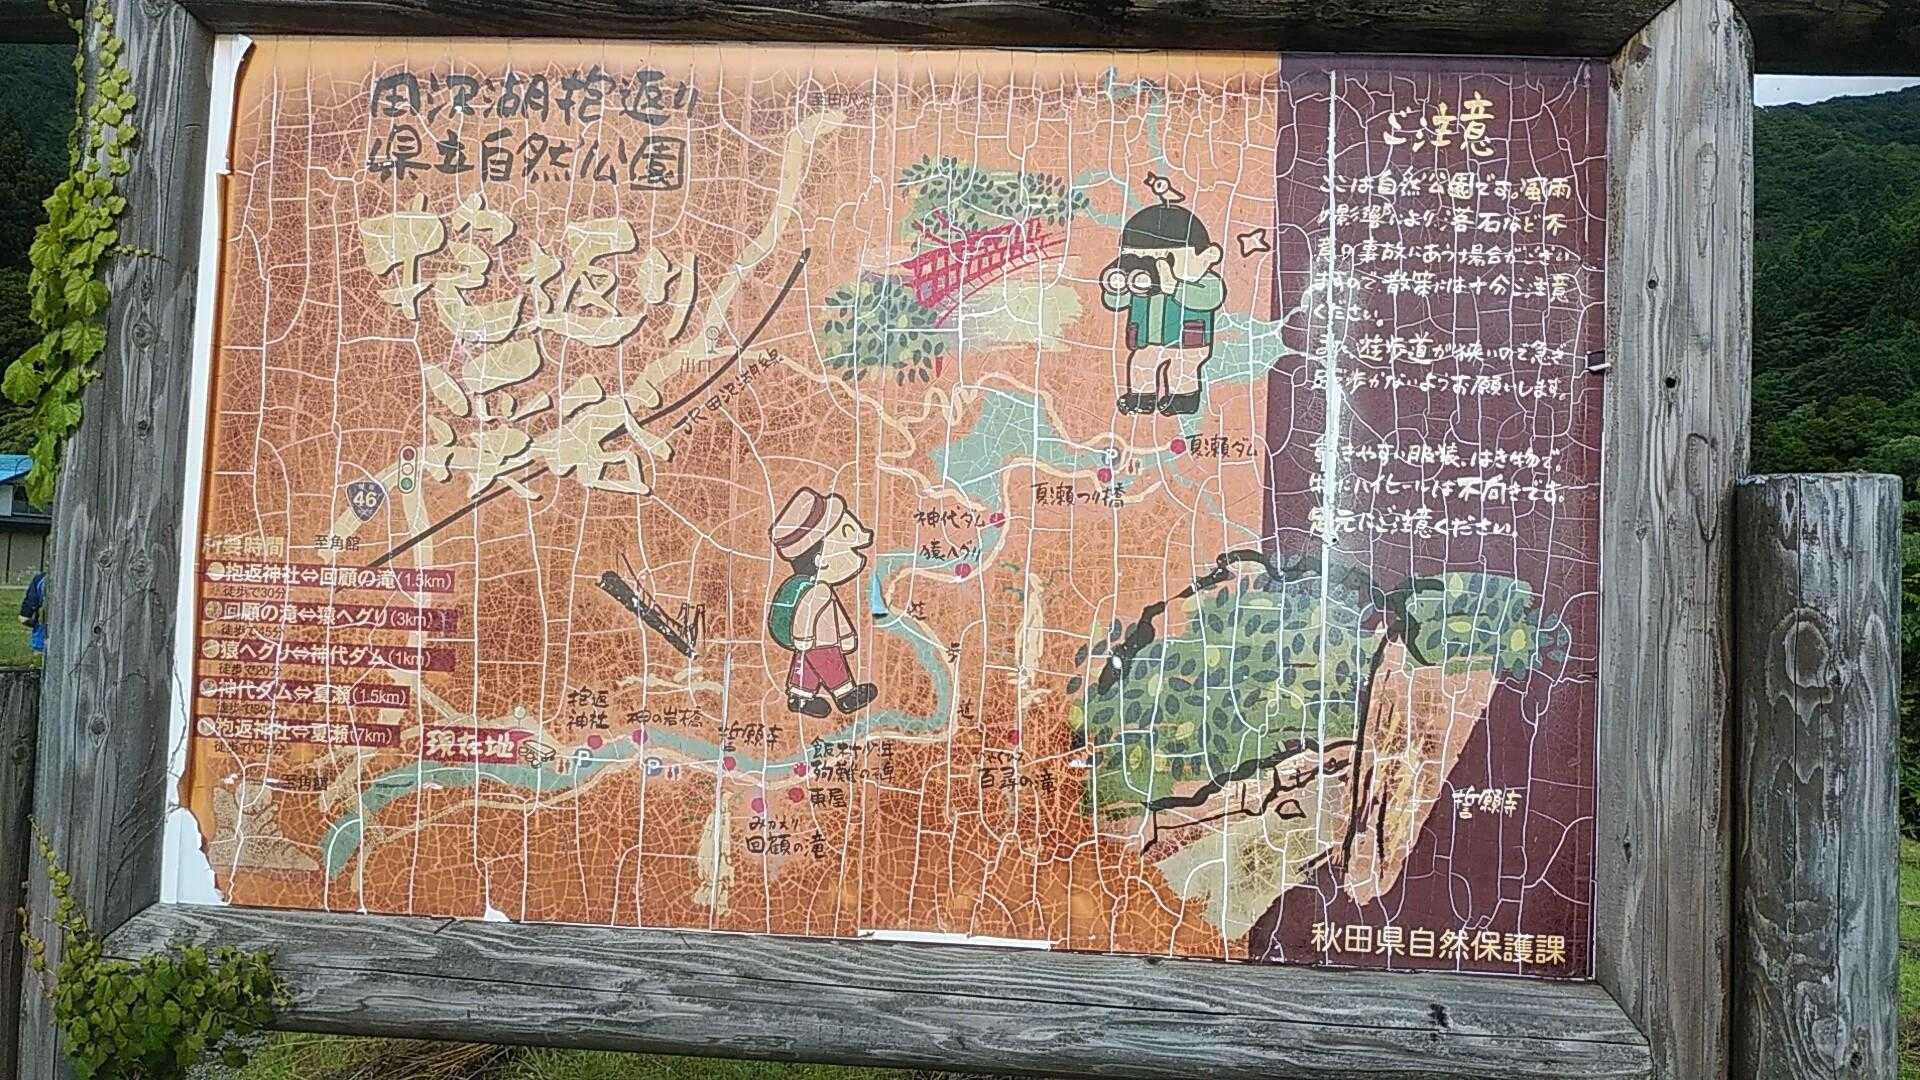 田沢湖抱返り
県立自然公園
抱返り
渓谷
至田沢湖
出口
JR田沢湖線
46
至角館
所要時間
抱返神社⇔回顧の滝(1.5km)
徒歩で30分
回顧の滝⇔猿へグリ(3km)
徒歩で45分
猿へグリ⇔神代ダム(1km)
徒歩で20分
神代ダム⇔夏瀬(1.5km)
徒歩で30分
抱返神社⇔夏瀬(7km)
徒歩で125分
至角館
現在地
抱返
神社
神の岩橋
誓願寺
飯村少年
殉難の碑
東屋
みかえり
回顧の滝
百尋の滝
遊
歩
道
猿へグリ
神代ダム
夏瀬つり橋
夏瀬ダム
P
P
P
ご注意
ここは自然公園です。風雨
の影響により、落石など不
意の事故にあう場合がござい
ますので散策には十分ご注意
ください。
また、遊歩道が狭いので急ぎ
足で歩かないようお願いします。
歩きやすい服装、はき物で。
特にハイヒールは不向きです。
足元にご注意ください。
誓願寺
秋田県自然保護課